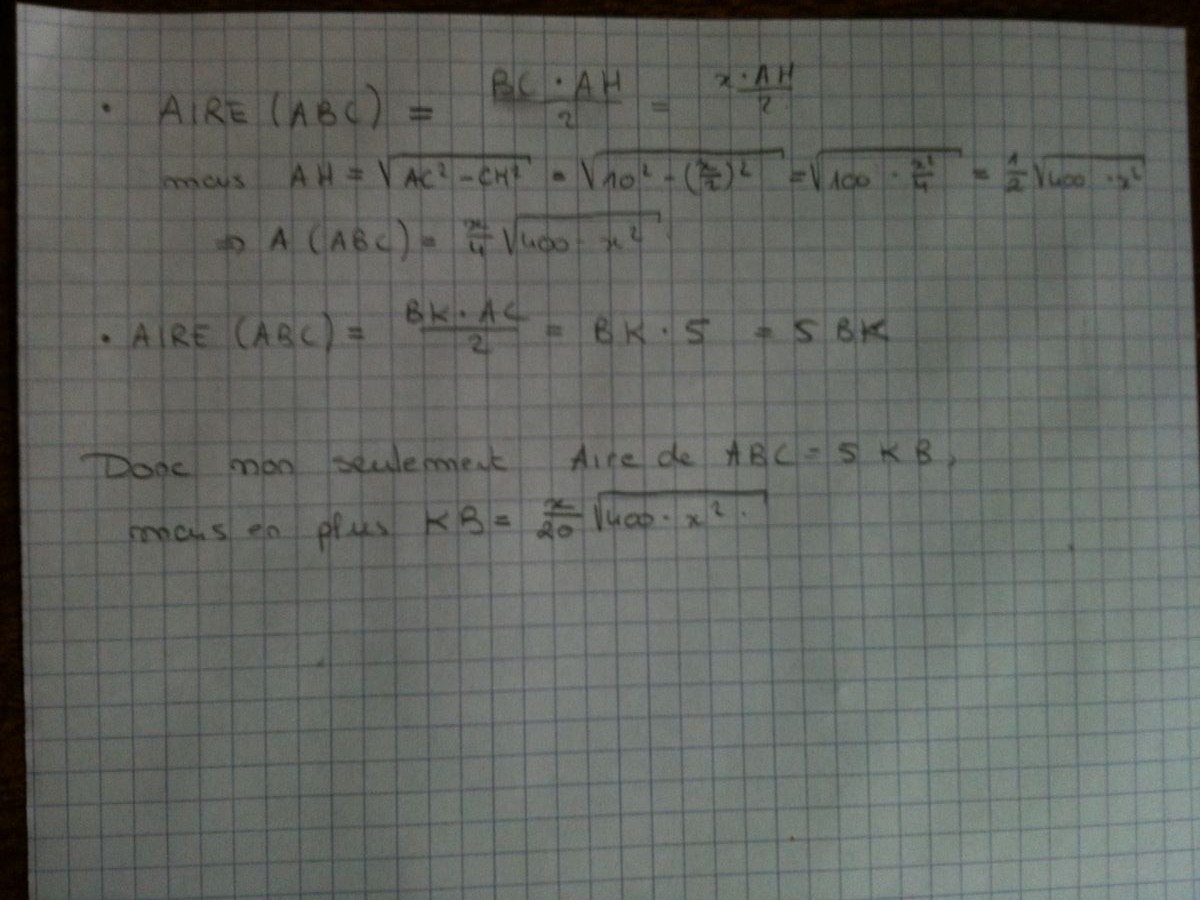 • AIRE (ABC) = BC · AH / 2 = x · AH / 2
mais AH = √(AC² - CH²) = √(10² - (x/2)²) = √(100 - x²/4) = 1/2 √(400 - x²)
⇒ A (ABC) = x/4 √(400 - x²)
• AIRE (ABC) = BK · AC / 2 = BK · 5 = 5 BK
Donc non seulement Aire de ABC = 5 KB,
mais en plus KB = x/20 √(400 - x²).